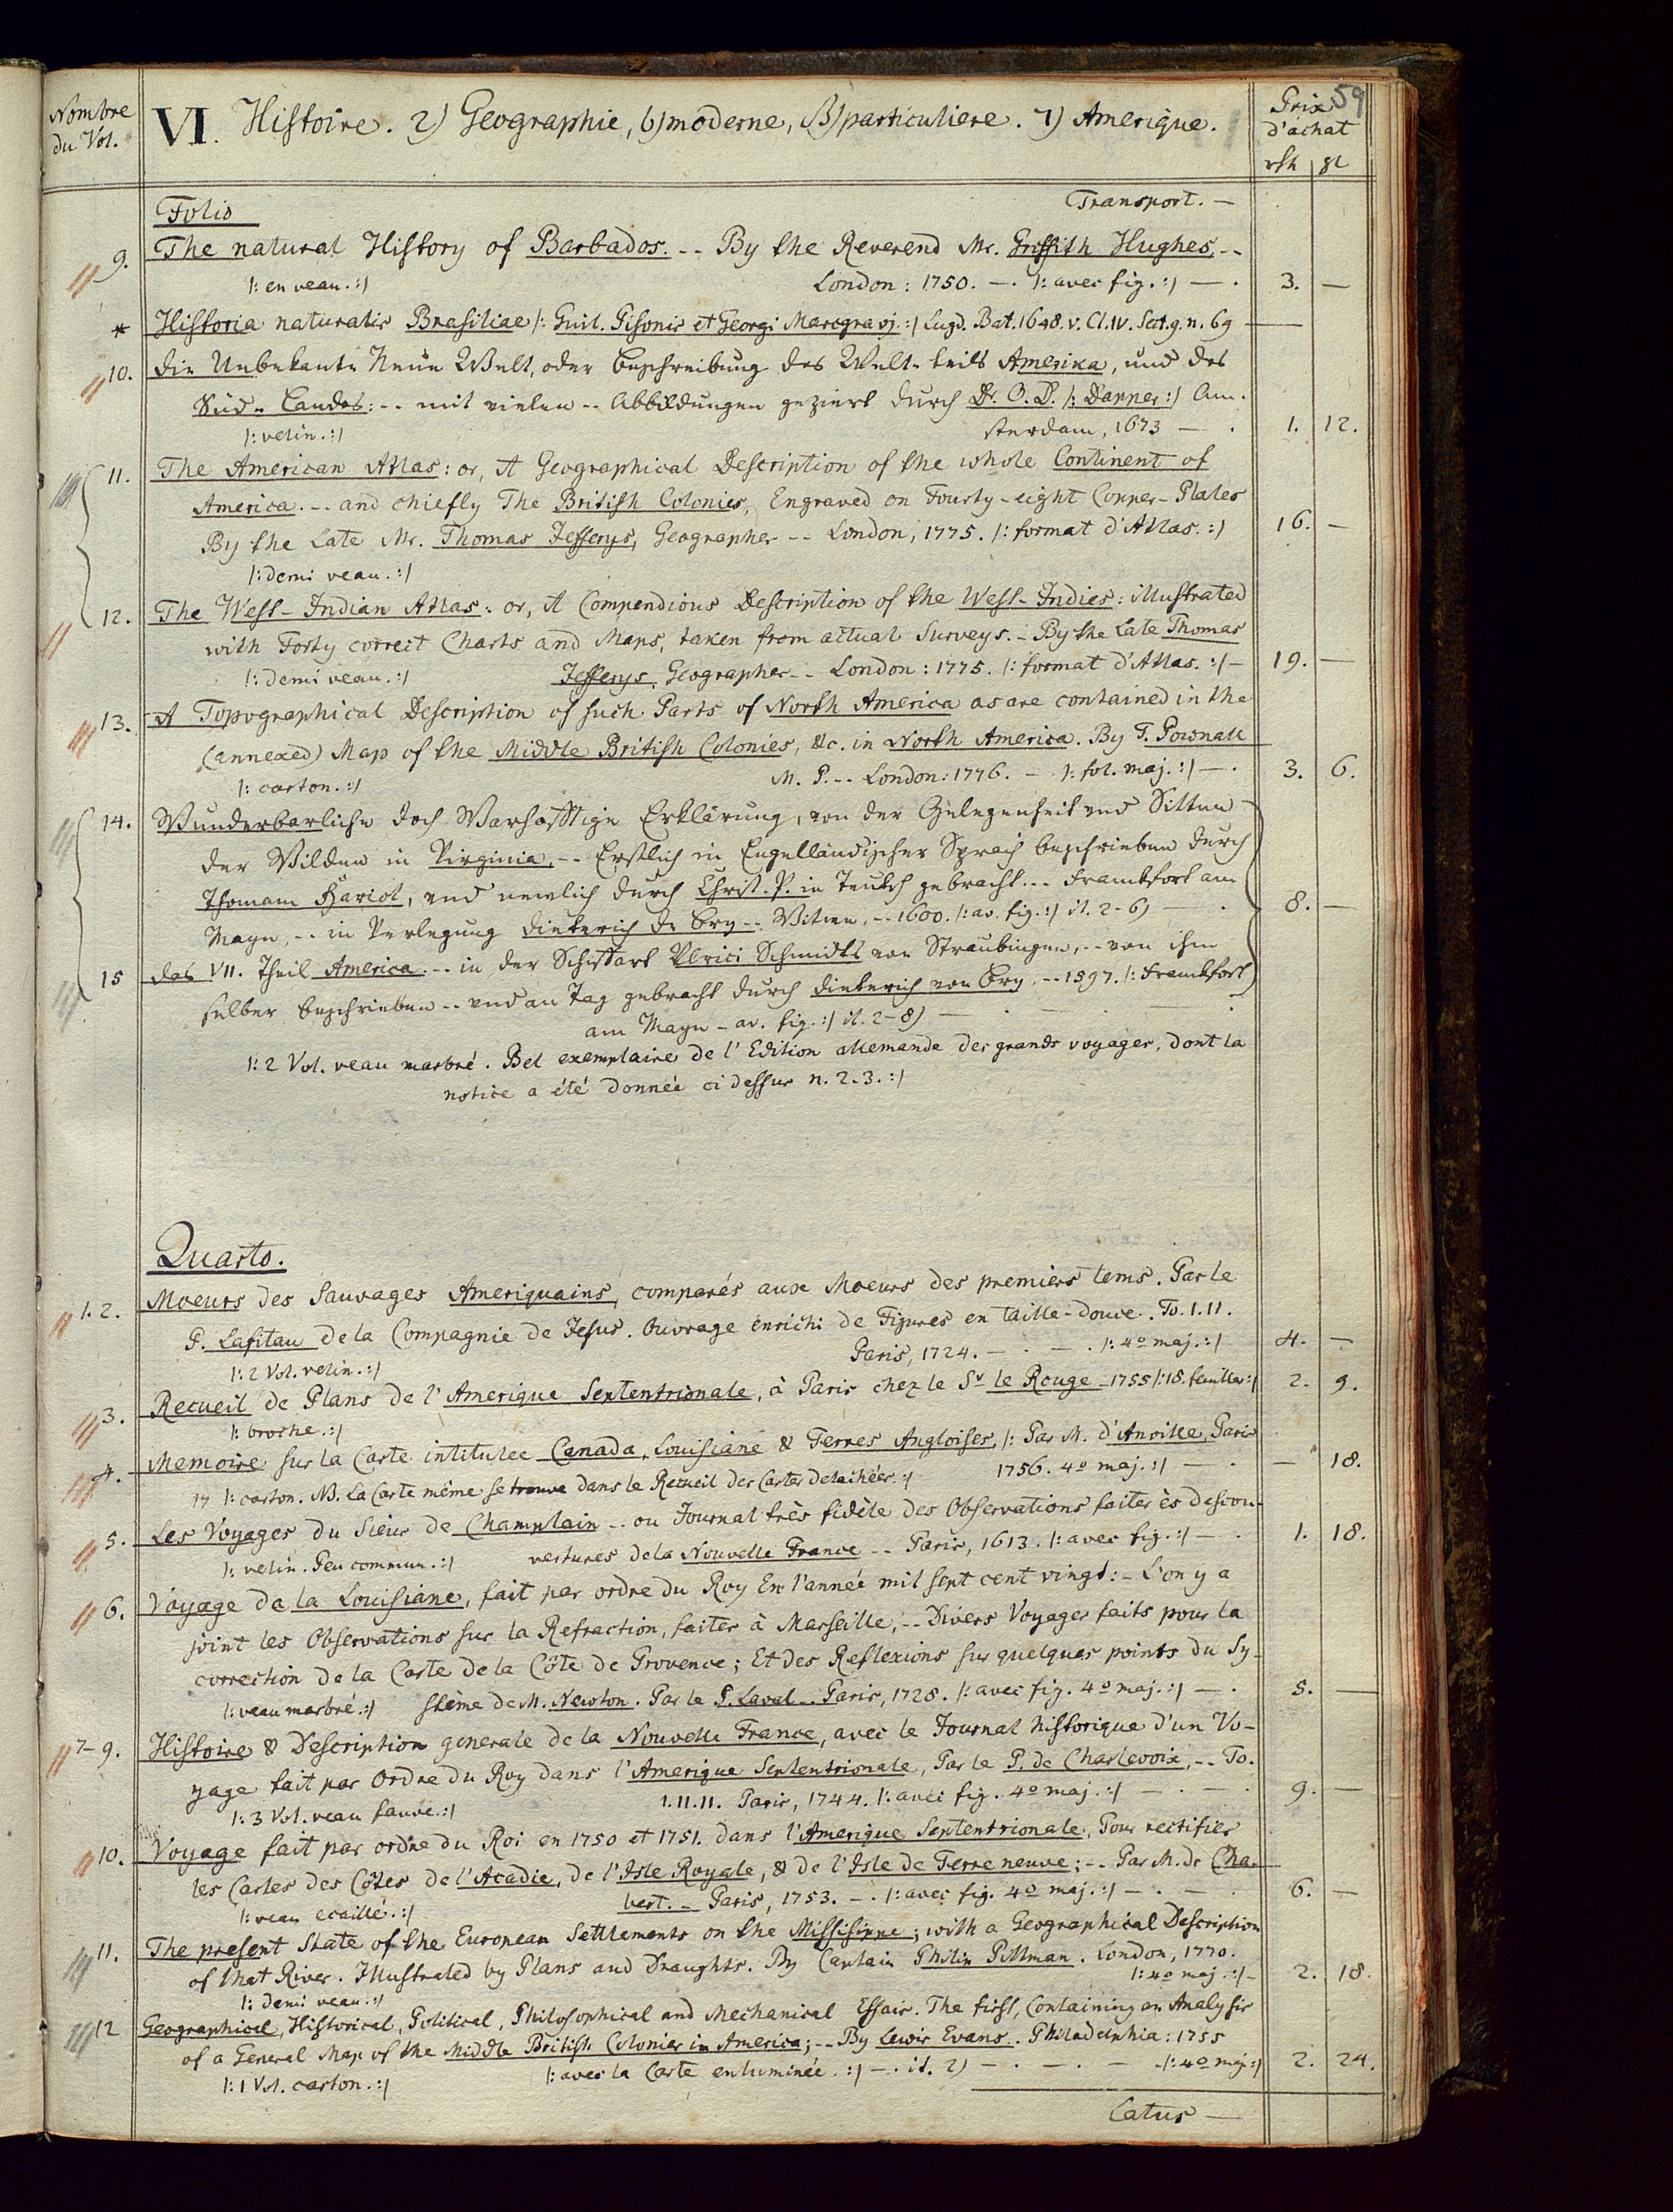 Nombre
du Vol.
VI. Histoire. 2) Geographie, b) moderne, β) particuliere. 7) Amerique.
Prix
d'achat
59
rth gl
Folio
Transport. —
9. The natural History of Barbados. -- By the Reverend Mr. Griffith Hughes, --
/: en veau. :/ London: 1750. —. /: avec fig. :/ —. 3. —
* Historia naturalis Brasiliae /: Guil. Pisonis et Georgi Marcgravj. :/ Lugd. Bat. 1648. v. Cl. IV. Sect. 9. n. 69 —
10. Die Unbekante Neue Welt, oder Beschreibung des Welt-teils Amerika, und des
Süd-Landes: -- mit vielen -- Abbildungen geziert durch Dr. O. D. /: Dapper :/ Am-
/: velin. :/ sterdam, 1673 — . 1. 12.
11. The American Atlas: or, A Geographical Description of the whole Continent of
America. -- and chiefly The British Colonies, Engraved on Fourty-eight Copper-Plates
By the Late Mr. Thomas Jefferys, Geographer -- London, 1775. /: format d'Atlas. :/ 16. —
/: demi veau. :/
12. The West-Indian Atlas: or, A Compendious Description of the West-Indies: illustrated
with Forty correct Charts and Maps, taken from actual Surveys. - By the Late Thomas
/: demi veau. :/ Jefferys, Geographer -- London: 1775. /: format d'Atlas. :/ — 19. —
13. A Topographical Description of such Parts of North America as are contained in the
(annexed) Map of the Middle British Colonies, &c. in North America. By T. Pownall
/: carton. :/ M. P. -- London: 1776. — /: fol. maj. :/ —. 3. 6.
14. Wunderbarliche doch Warhafftige Erklärung, von der Gelegenheit und Sitten
der Wilden in Virginia, -- Erstlich in Engelländischer Sprach beschrieben durch
Thomam Hariot, und newlich durch Christ. P. in Teutsch gebracht. -- Franckfort am
Mayn, -- in Verlegung Dieterich de Bry -- Witwe, -- 1600. /: av. fig. :/ it. 2-6) — . 8. —
15 Das VII. Theil America. -- in der Schiffart Ulrici Schmidts von Straubingen, -- von ihm
selber beschrieben -- und an Tag gebracht durch Dieterich von Bry, -- 1597. /: Franckfort
am Mayn - av. fig. :/ it. 2-8) — . — . — .
/: 2 Vol. veau marbré. Bel exemplaire de l'Edition allemande des grands voyages, dont la
notice a été donnée ci dessus n. 2. 3. :/
Quarto.
1. 2. Moeurs des Sauvages Ameriquains, comparés aux Moeurs des premiers tems. Par le
P. Lafitau de la Compagnie de Jesus. Ouvrage enrichi de Figures en taille-douce. To. I. II.
/: 2 Vol. velin. :/ Paris, 1724. — . — . /: 4º maj. :/ 4. —
3. Recueil de Plans de l'Amerique Septentrionale, à Paris chez le Sr le Rouge - 1755 /: 18. feuilles :/ 2. 9.
/: broche. :/
4. Memoire sur la Carte intitulee Canada, Louisiane & Terres Angloises, /: Par M. d'Anville, Paris
/: carton. NB. La Carte même se trouve dans le Recueil des Cartes detachées. :/ 1756. 4º maj. :/ — . — 18.
5. Les Voyages du Sieur de Champlain -- ou Journal très fidèle des Observations faites ès descou-
/: velin. Peu commun. :/ vertures de la Nouvelle France -- Paris, 1613. /: avec fig. :/ — . 1. 18.
6. Voyage de la Louisiane, fait par ordre du Roy En l'année mil sept cent vingt: - L'on y a
joint les Observations sur la Refraction, faites à Marseille, -- Divers Voyages faits pour la
correction de la Carte de la Côte de Provence; Et des Reflexions sur quelques points du Sy-
/: veau marbré. :/ stème de M. Newton. Par le P. Laval -- Paris, 1728. /: avec fig. 4º maj. :/ — . 5. —
7-9. Histoire & Description generale de la Nouvelle France, avec le Journal historique d'un Vo-
yage fait par Ordre du Roy dans l'Amerique Septentrionale, Par le P. de Charlevoix, -- To.
/: 3 Vol. veau fauve. :/ I. II. II. Paris, 1744. /: avec fig. 4º maj. :/ — . — . 9. —
10. Voyage fait par ordre du Roi en 1750 et 1751. dans l'Amerique Septentrionale, Pour rectifier
les Cartes des Côtes de l'Acadie, de l'Isle Royale, & de l'Isle de Terre neuve; -- Par M. de Cha-
/: veau ecaillé. :/ bert. - Paris, 1753. — . /: avec fig. 4º maj. :/ — . — . 6. —
11. The present State of the European Settlements on the Missisippe; with a Geographical Description
of that River. Illustrated by Plans and Draughts. By Captain Philip Pittman. London, 1770.
/: demi veau. :/ /: 4º maj. :/ - 2. 18.
12 Geographical, Historical, Political, Philosophical and Mechanical Essais. The first, Containing an Analysis
of a General Map of the Middle British Colonies in America; -- By Lewis Evans. Philadelphia: 1755
/: 1 Vol. carton. :/ /: avec la Carte enluminée. :/ — . it. 2) — . — . — /: 4º maj. :/ 2. 24.
Latus —